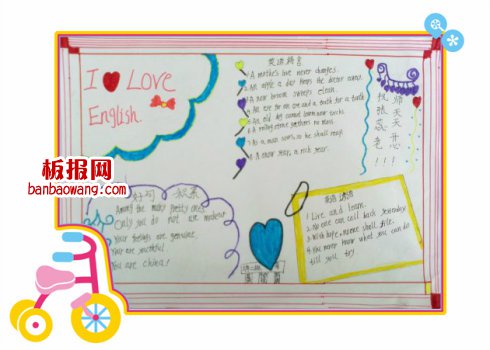 I ❤ Love
English.
英语谚言
1. A mother's love never changes.
2. An apple a day keeps the doctor away.
3. A new broom sweeps clean.
4. An eye for an eye and a tooth for a tooth
5. An old dog cannot learn new tricks.
6. A rolling stone gathers no moss.
7. As a man sows, so he shall reap.
8. A snow year, a rich year.
祝 师
张 天
蕊 天
老 开
心
!!!
板报网
banbaowang.com
好句
Among the many pretty ones
Only you do not use makeup
Your feelings are genuine
You are youthful
You are china!
英语谚语
1. Live and learn.
2. No one can call back yesterday.
3. With hope, no one shall
4. You never know what you can do
till you try.